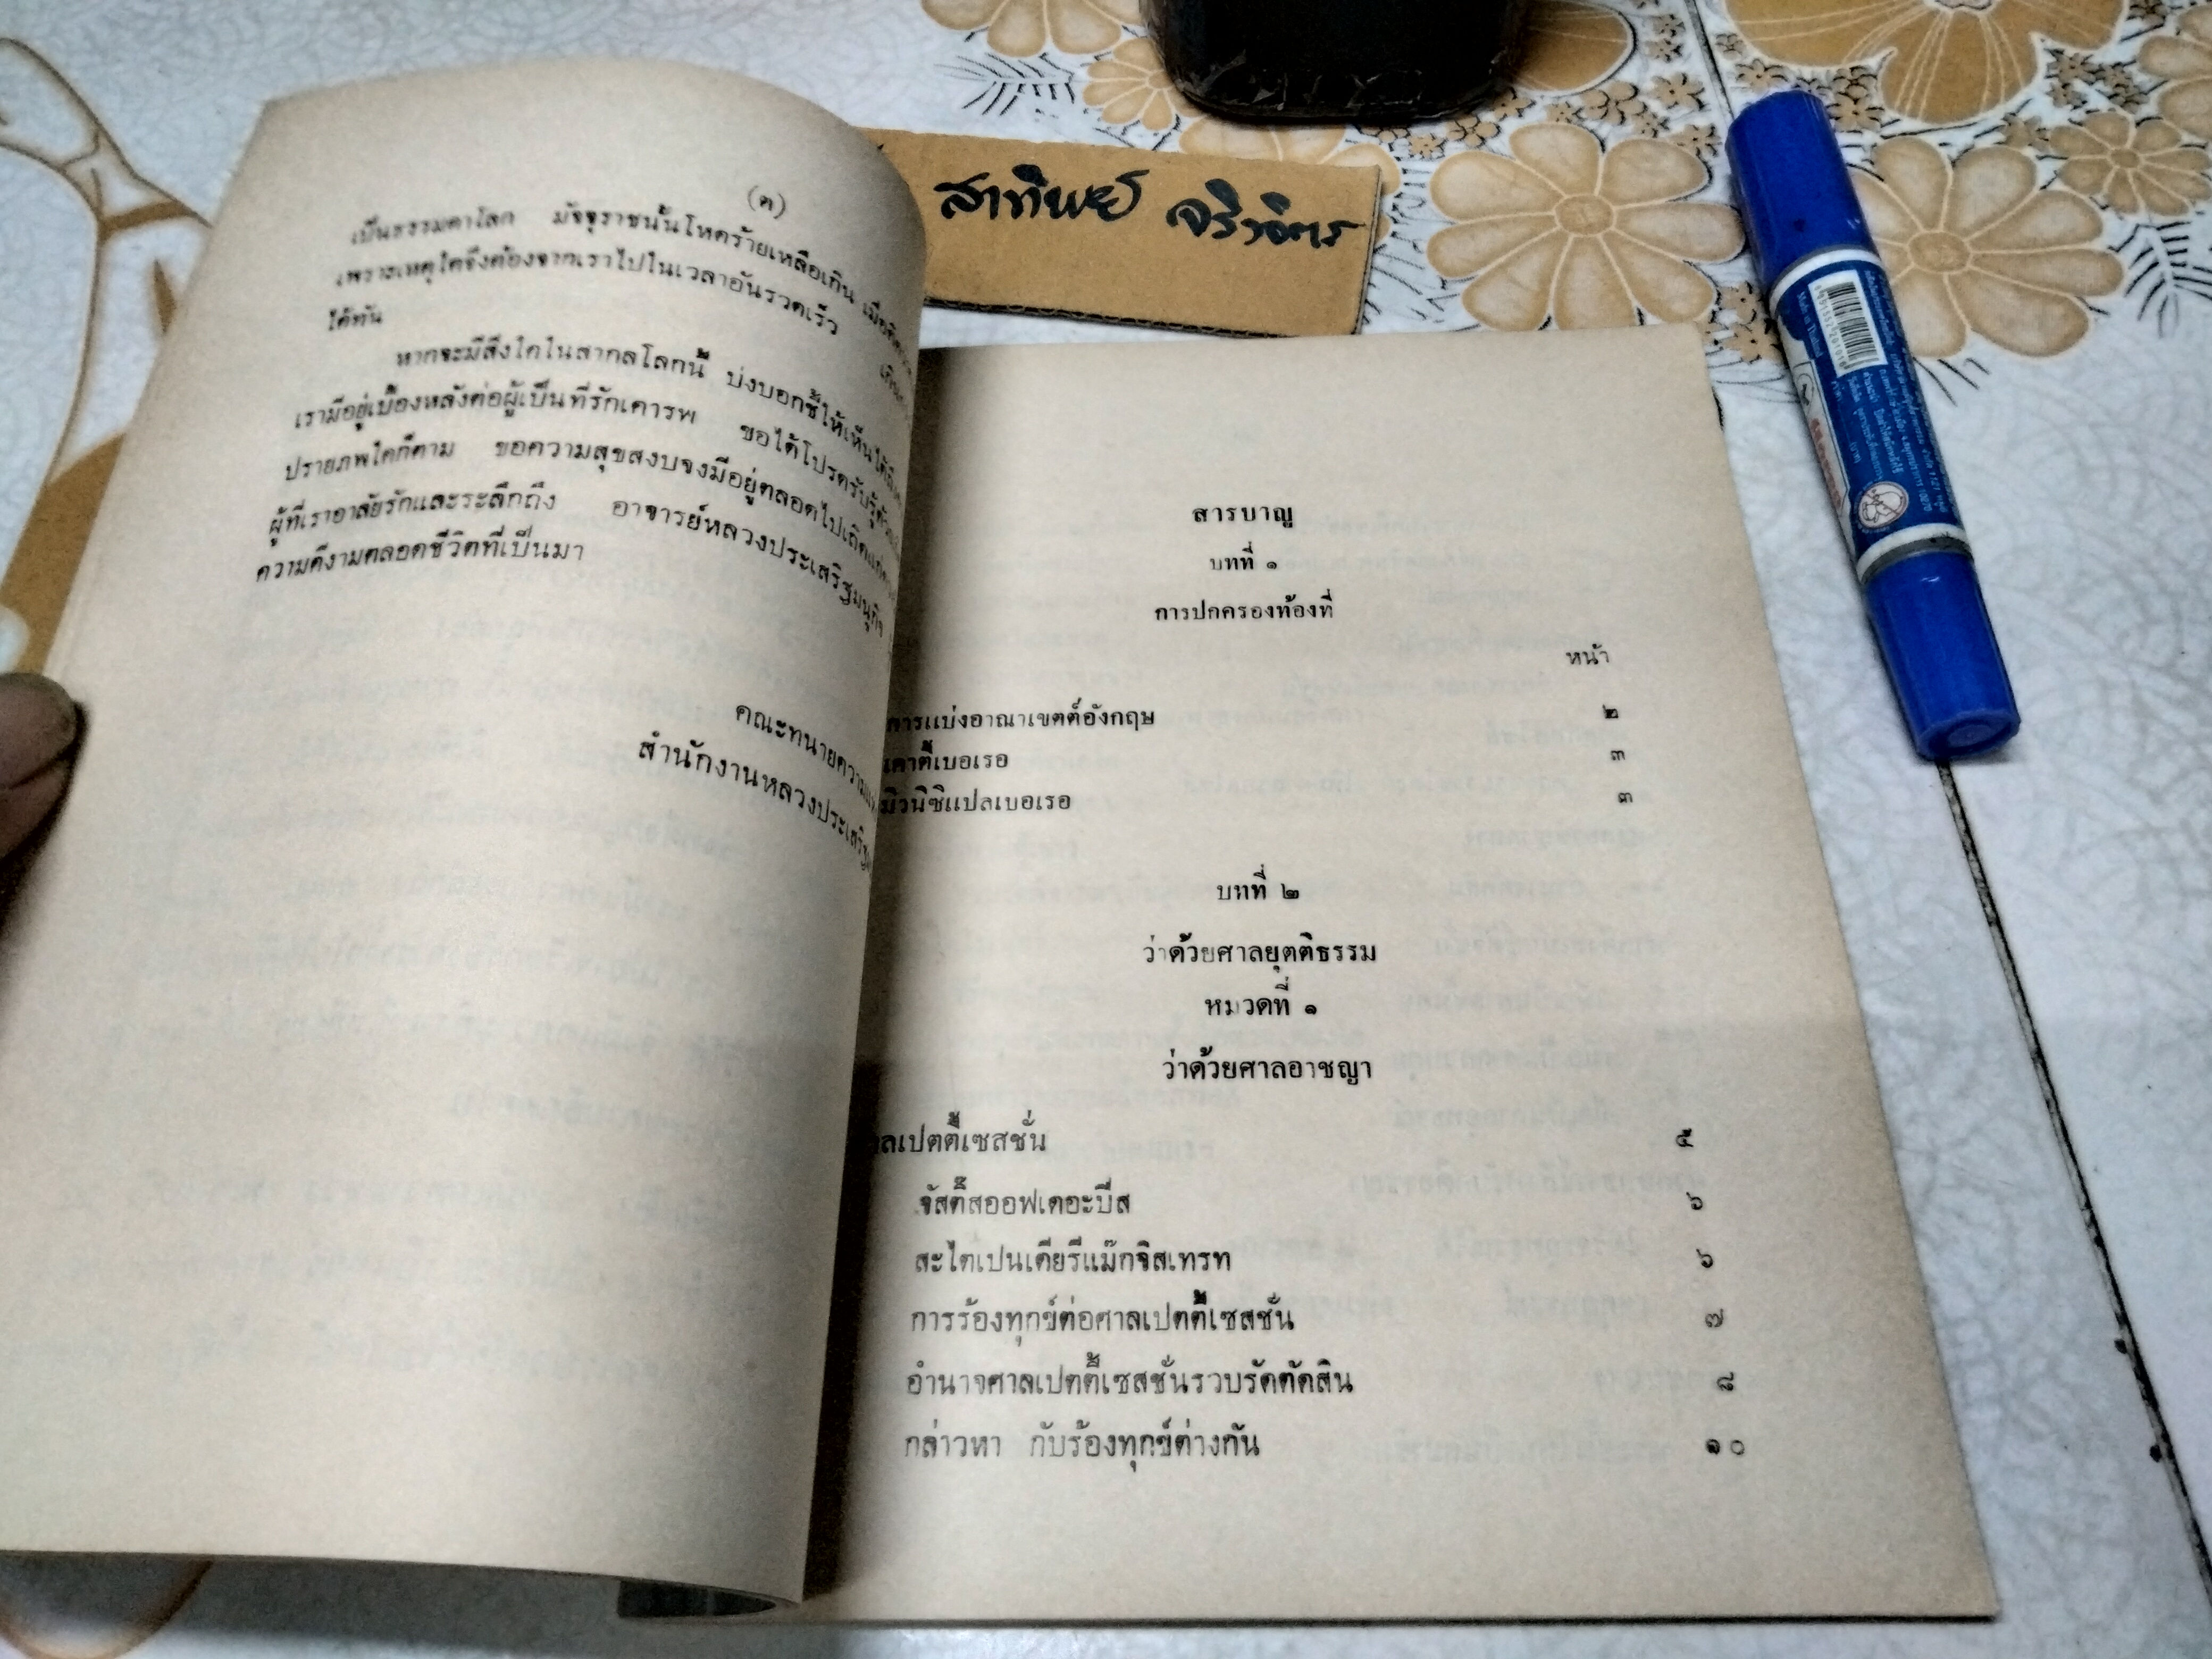 (ค)
เป็นธรรมดาโลก มัจจุราชนั้นโหดร้ายเหลือเกิน
เพราะเหตุใดจึงต้องจากเราไปในเวลาอันรวดเร็ว
ได้ทัน
หากจะมีสิ่งใดในสากลโลกนี้ บ่งบอกชี้ให้เห็นได้
เรามีอยู่เบื้องหลังต่อผู้เป็นที่รักเคารพ ขอได้โปรดรับรู้ด้วย
ปรายภพใดก็ตาม ขอความสุขสงบจงมีอยู่ตลอดไปเถิด
ผู้ที่เราอาลัยรักและระลึกถึง อาจารย์หลวงประเสริฐมนูกิจ
ความดีงามตลอดชีวิตที่เป็นมา
คณะทนายความ
สำนักงานหลวงประเสริฐ
สาทิพย์
สารบาญ
บทที่ ๑
การปกครองท้องที่
หน้า
การแบ่งอาณาเขตต์อังกฤษ ๒
เคาตี้เบอเรอ ๓
มิวนิซิแปลเบอเรอ ๓
บทที่ ๒
ว่าด้วยศาลยุตติธรรม
หมวดที่ ๑
ว่าด้วยศาลอาชญา
ศาลเปตตี้เซสชั่น ๕
จัสติ๊สออฟเดอะบีส ๖
สะไตเปนเดียรีแม๊กจิสเทรท ๖
การร้องทุกข์ต่อศาลเปตตี้เซสชั่น ๗
อำนาจศาลเปตตี้เซสชั่นรวบรัดตัดสิน ๘
กล่าวหา กับร้องทุกข์ต่างกัน ๑๐
Made in Thailand